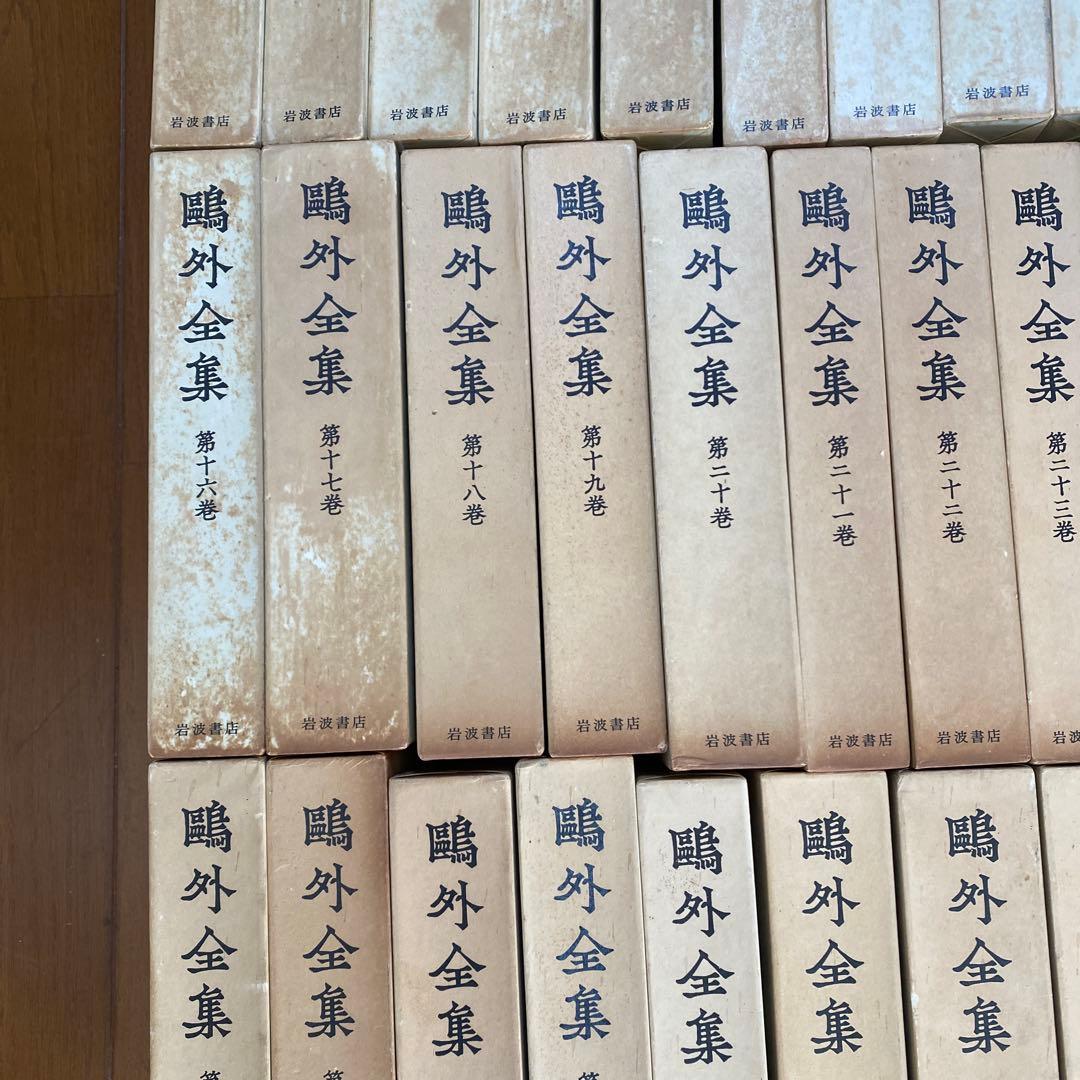 岩波書店
岩波書店
岩波書店
岩波書店
岩波書店
岩波書店
岩波書店
岩波書店
鷗外全集
第十六巻
岩波書店
鷗外全集
第十七巻
岩波書店
鷗外全集
第十八巻
岩波書店
鷗外全集
第十九巻
岩波書店
鷗外全集
第二十巻
岩波書店
鷗外全集
第二十一巻
岩波書店
鷗外全集
第二十二巻
岩波書店
鷗外全集
第二十三巻
岩波書
鷗外全集
第
鷗外全集
第
鷗外全集
鷗外全集
第
鷗外全集
鷗外全集
鷗外全集